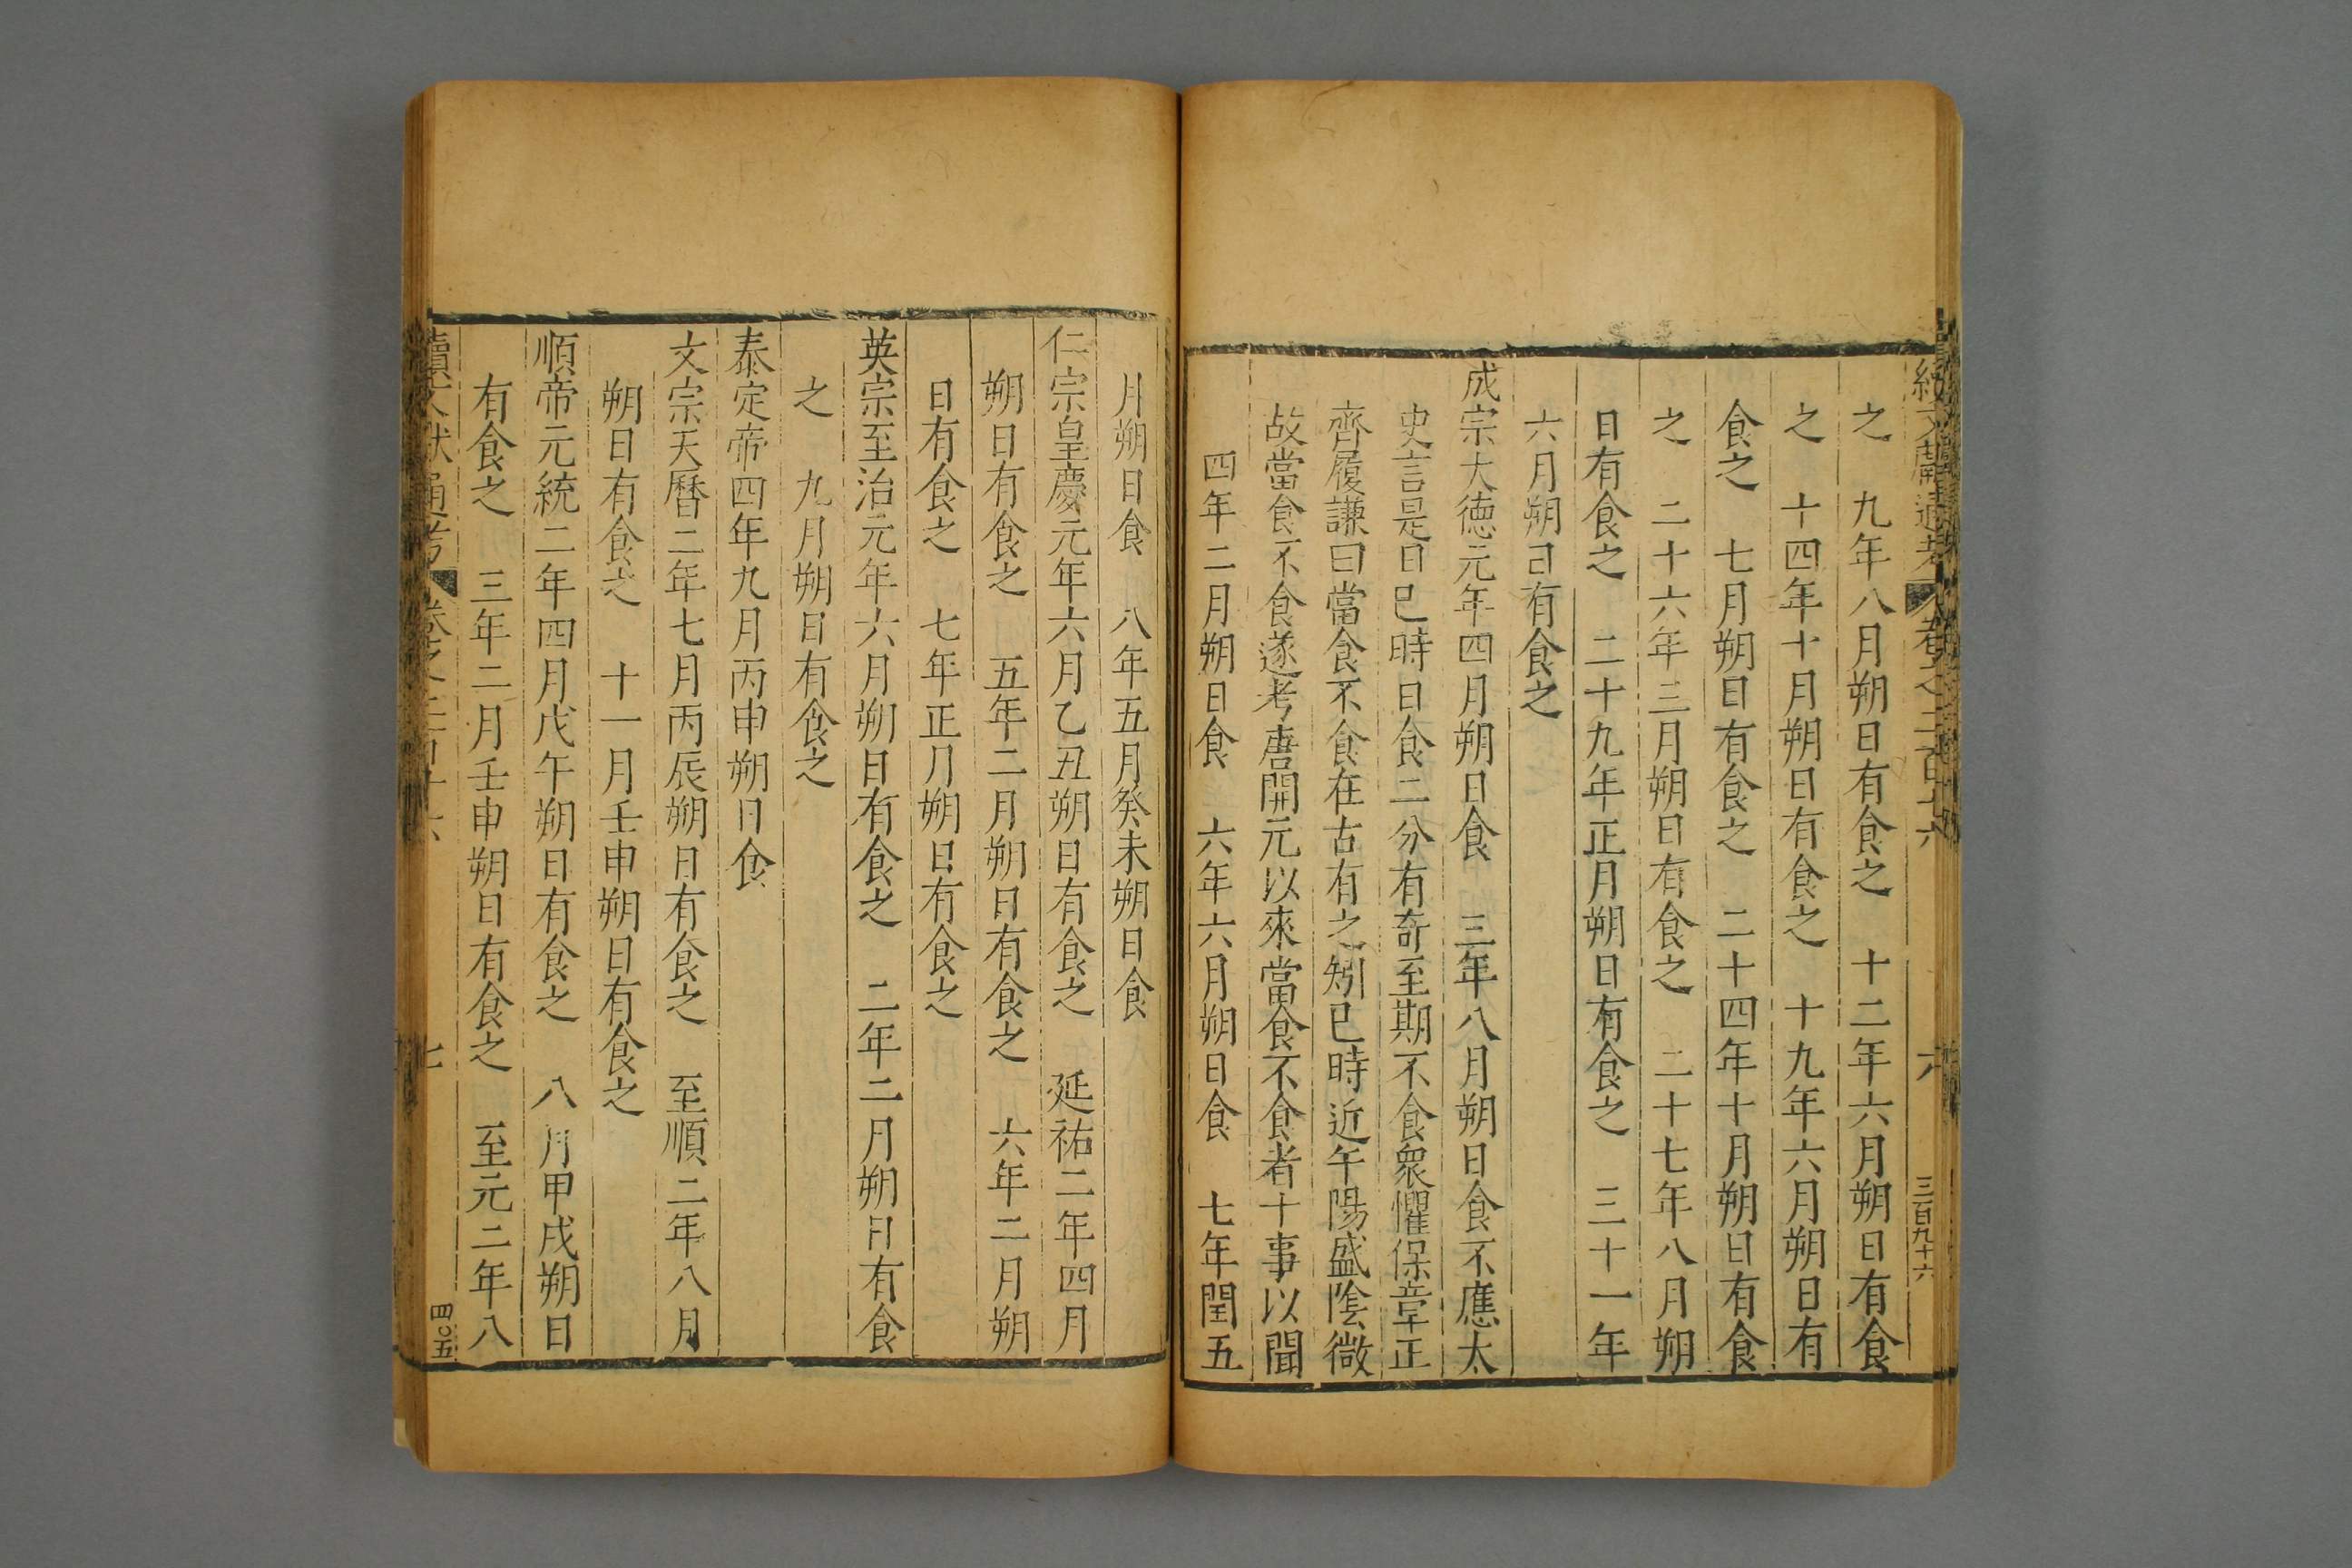 續文獻通考 卷之二百十六 六 三百九十六
之 九年八月朔日有食之 十二年六月朔日有食
之 十四年十月朔日有食之 十九年六月朔日有
食之 七月朔日有食之 二十四年十月朔日有食
之 二十六年三月朔日有食之 二十七年八月朔
日有食之 二十九年正月朔日有食之 三十一年
六月朔日有食之
成宗大德元年四月朔日食 三年八月朔日食不應太
史言是日巳時日食二分有奇至期不食衆懼保章正
齊履謙曰當食不食在古有之矧巳時近午陽盛陰微
故當食不食遂考唐開元以來當食不食者十事以聞
四年二月朔日食 六年六月朔日食 七年閏五
月朔日食 八年五月癸未朔日食
仁宗皇慶元年六月乙丑朔日有食之 延祐二年四月
朔日有食之 五年二月朔日有食之 六年二月朔
日有食之 七年正月朔日有食之
英宗至治元年六月朔日有食之 二年二月朔日有食
之 九月朔日有食之
泰定帝四年九月丙申朔日食
文宗天曆二年七月丙辰朔日有食之 至順二年八月
朔日有食之 十一月壬申朔日有食之
順帝元統二年四月戊午朔日有食之 八月甲戌朔日
有食之 三年二月壬申朔日有食之 至元二年八
續文獻通考 卷之二百十六 七